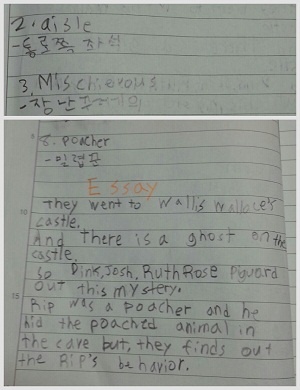 2. aisle
-통로쪽 좌석
3. Mischievous
-장난꾸러기의
8. poacher
-밀렵꾼
Essay
They went to Wallis wallace's
castle.
And There is a ghost on the
castle.
So Dink, Josh, Ruth Rose
out this mystery.
Rip was a poacher and he
hid the poached animal in
the cave but, they finds out
the Rip's behavior.